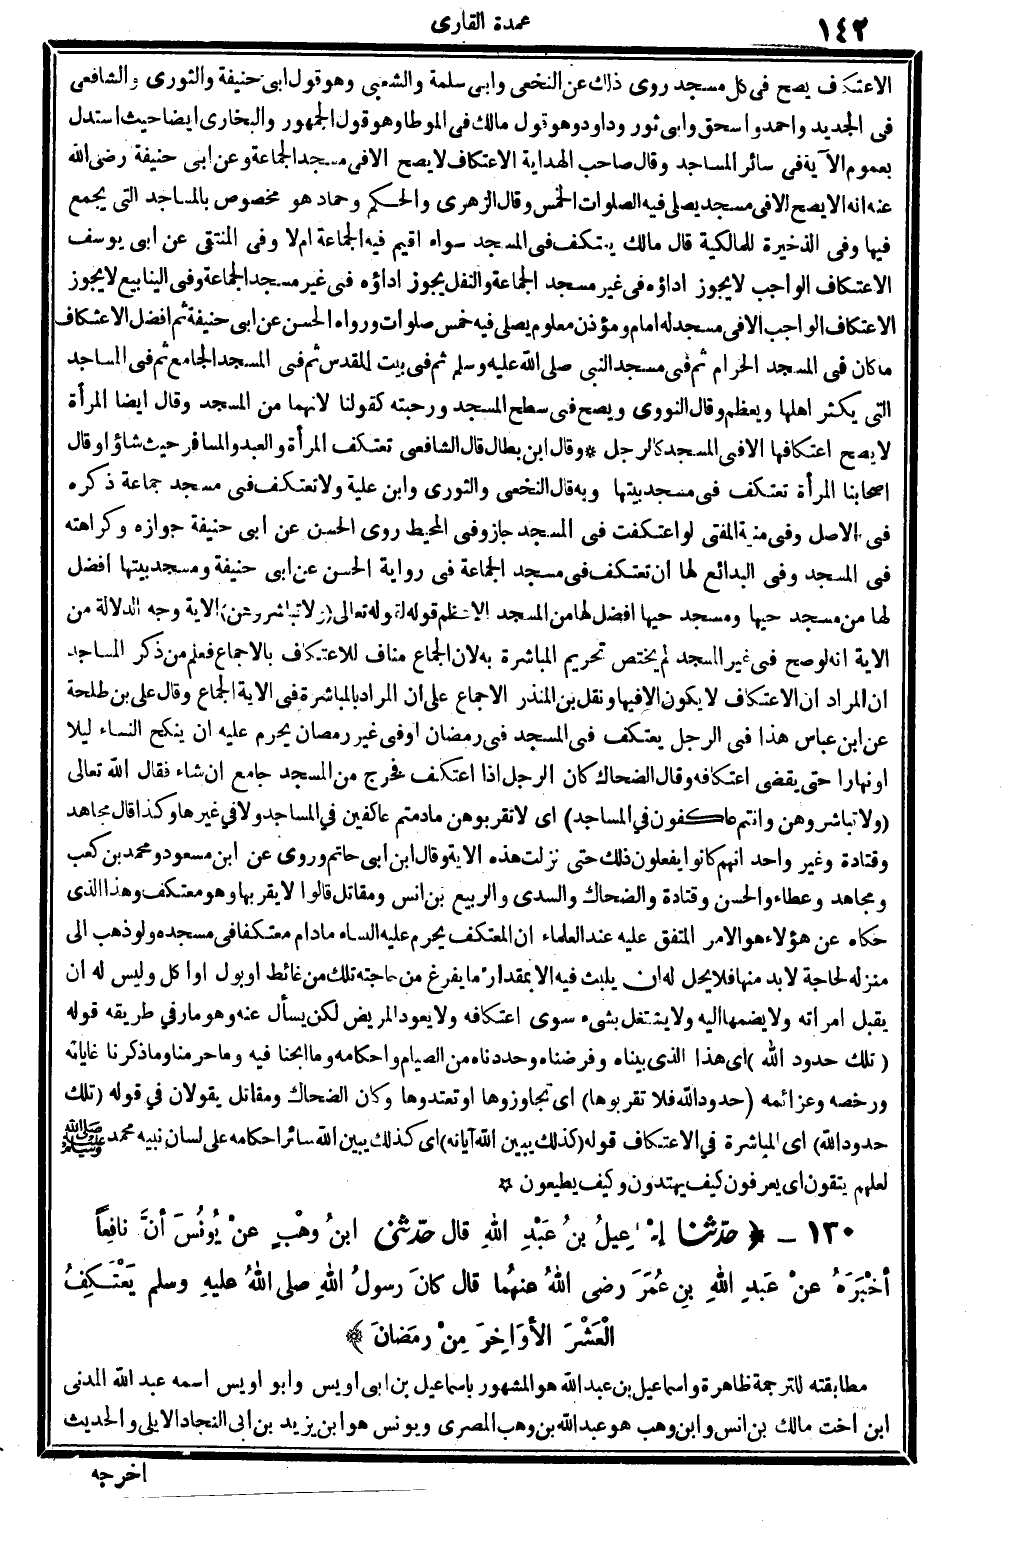 ١٤٢
عمدة القارى
الاعتكاف يصح فى كل مسجد روى ذلك عن النخعى وابى سلمة والشعبى وهو قول ابى حنيفة والثورى والشافعى
فى الجديد واحمد واسحق وابى ثور وداود وهو قول مالك فى الموطا وهو قول الجمهور والبخارى ايضا حيث استدل
بعموم الآية فى سائر المساجد وقال صاحب الهداية الاعتكاف لا يصح الا فى مسجد الجماعة وعن ابى حنيفة رضى الله
عنه انه لا يصح الا فى مسجد يصلى فيه الصلوات الخمس وقال الزهرى والحكم وحماد هو مخصوص بالمساجد التى يجمع
فيها وفى الذخيرة للمالكية قال مالك يعتكف فى المسجد سواء اقيم فيه الجماعة ام لا وفى المنتقى عن ابى يوسف
الاعتكاف الواجب لا يجوز اداؤه فى غير مسجد الجماعة والنفل يجوز اداؤه فى غير مسجد الجماعة وفى الينابيع لا يجوز
الاعتكاف الواجب الا فى مسجد له امام ومؤذن معلوم يصلى فيه خمس صلوات ورواه الحسن عن ابى حنيفة ثم افضل الاعتكاف
ما كان فى المسجد الحرام ثم فى مسجد النبى صلى الله عليه وسلم ثم فى بيت المقدس ثم فى المسجد الجامع ثم فى المساجد
التى يكثر اهلها ويعظم وقال النووى ويصح فى سطح المسجد ورحبته كقولنا لانهما من المسجد وقال ايضا المرأة
لا يصح اعتكافها الا فى المسجد كالرجل * وقال ابن بطال قال الشافعى تعتكف المرأة والعبد والمسافر حيث شاؤا وقال
اصحابنا المرأة تعتكف فى مسجد بيتها وبه قال النخعى والثورى وابن علية ولا تعتكف فى مسجد جماعة ذكره
فى الاصل وفى منية المفتى لو اعتكفت فى المسجد جاز وفى المحيط روى الحسن عن ابى حنيفة جوازه وكراهته
فى المسجد وفى البدائع لها ان تعتكف فى مسجد الجماعة فى رواية الحسن عن ابى حنيفة ومسجد بيتها افضل
لها من مسجد حيها ومسجد حيها افضل لها من المسجد الاعظم قوله لقوله تعالى (ولا تباشروهن) الاية وجه الدلالة من
الاية انه لو صح فى غير المسجد لم يختص تحريم المباشرة به لان الجماع مناف للاعتكاف بالاجماع فعلم من ذكر المساجد
ان المراد ان الاعتكاف لا يكون الا فيها ونقل بن المنذر الاجماع على ان المراد بالمباشرة فى الاية الجماع وقال على بن طلحة
عن ابن عباس هذا فى الرجل يعتكف فى المسجد فى رمضان او فى غير رمصان يحرم عليه ان ينكح النساء ليلا
او نهارا حتى يقضى اعتكافه وقال الضحاك كان الرجل اذا اعتكف فخرج من المسجد جامع ان شاء فقال الله تعالى
(ولا تباشروهن وانتم عاكفون في المساجد) اى لا تقربوهن مادمتم عاكفين في المساجد ولا في غيرها وكذا قال مجاهد
وقتادة وغير واحد انهم كانوا يفعلون ذلك حتى نزلت هذه الاية وقال ابن ابى حاتم وروى عن ابن مسعود ومحمد بن كعب
ومجاهد وعطاء والحسن وقتادة والضحاك والسدى والربيع بن انس ومقاتل قالوا لا يقربها وهو معتكف وهذا الذى
حكاه عن هؤلاء هو الامر المتفق عليه عند العلماء ان المعتكف يحرم عليه النساء مادام معتكفا فى مسجده ولو ذهب الى
منزله لحاجة لا بد منها فلا يحل له ان يلبث فيه الا بمقدار ما يفرغ من حاجته تلك من غائط او بول او اكل وليس له ان
يقبل امراته ولا يضمها اليه ولا يشتغل بشىء سوى اعتكافه ولا يعود المريض لكن يسأل عنه وهو مار في طريقه قوله
(تلك حدود الله) اى هذا الذى بيناه وفرضناه وحددناه من الصيام واحكامه وما ابحنا فيه وما حرمنا وما ذكرنا غاياته
ورخصه وعزائمه (حدود الله فلا تقربوها) اى تجاوزوها او تعتدوها وكان الضحاك ومقاتل يقولان في قوله (تلك
حدود الله) اى المباشرة في الاعتكاف قوله (كذلك يبين الله آياته) اى كذلك يبين الله سائر احكامه على لسان نبيه محمد ﷺ
لعلهم يتقون اى يعرفون كيف يهتدون وكيف يطيعون *
١٣٠ ـ ﴿ حدّثنا إسْمَاعِيلُ بنُ عَبْدِ اللهِ قال حدّثنى ابنُ وهْبٍ عنْ يُونُسَ أنَّ نافِعاً
أخْبَرَهُ عنْ عَبدِ اللهِ بنِ عُمَرَ رضى اللهُ عنهُما قال كانَ رسولُ اللهِ صلى اللهُ عليهِ وسلم يَعْتَكِفُ
الْعَشْرَ الأوَاخِرَ مِنْ رمَضانَ ﴾
مطابقته للترجمة ظاهرة واسماعيل بن عبدالله هو المشهور باسماعيل بن ابى اويس وابو اويس اسمه عبد الله المدنى
ابن اخت مالك بن انس وابن وهب هو عبدالله بن وهب المصرى ويونس هو ابن يزيد بن ابى النجاد الايلى والحديث
اخرجه